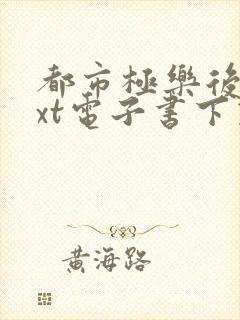 都市極樂後
xt電子書下
黃海路